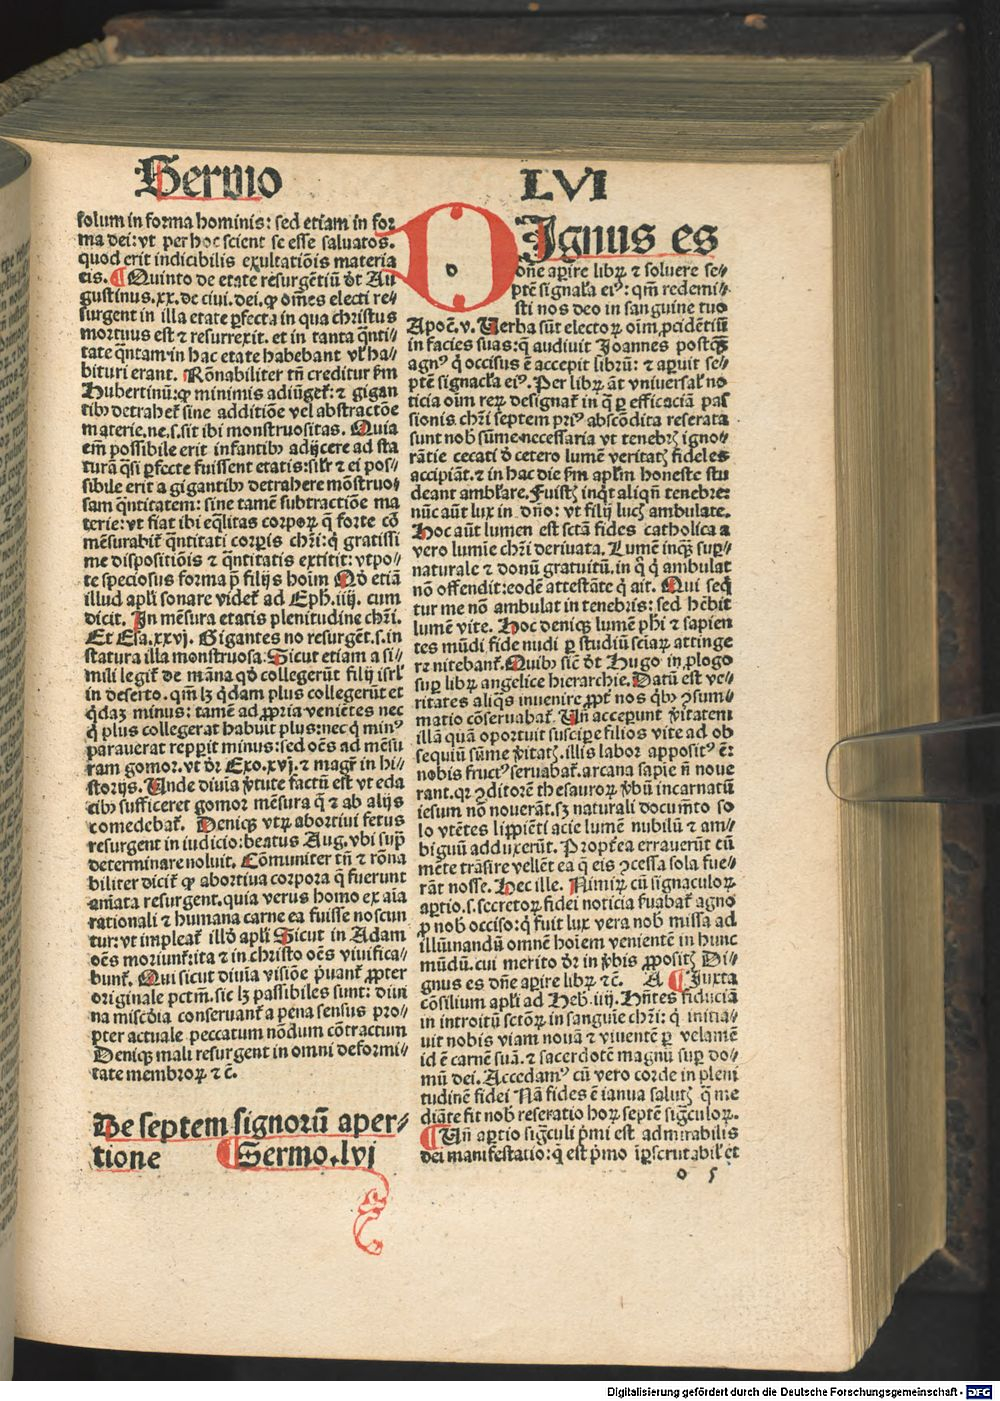 Sermo
LVI
solum in forma hominis: sed etiam in for
ma dei: vt per hoc scient se esse saluatos.
quod erit indicibilis exultatiōis materia
tis. ¶Quinto de etate resurgētiū d̄t Au
gustinus.xx.de ciui. dei. ꝙ om̄es electi re⸗
surgent in illa etate ꝑfecta in qua christus
mortuus est ⁊ resurrexit. et in tanta q̄nti⸗
tate q̄ntam in hac etate habebant vl̓ ha⸗
bituri erant. Rōnabiliter tn̄ creditur ẜm
Hubertinū: ꝙ minimis adiūget̃: ⁊ gigan
tibꝫ detrahet̃ sine additiōe vel abstractōe
materie. ne.s. sit ibi monstruositas. Quia
em̄ possibile erit infantibꝫ adijcere ad sta
turā q̄si ꝑfecte fuissent etatis: sil̓r ⁊ ei pos⸗
sibile erit a gigantibꝫ detrahere mōstruo⸗
sam q̄ntitatem: sine tamē subtractiōe ma
terie: vt fiat ibi eq̄litas corpoꝝ q̄ forte cō
mēsurabit̃ q̄ntitati corpis chr̄i: q̇ gratissi
me dispositiōis ⁊ q̄ntitatis extitit: vtpo⸗
te speciosus forma p̄ filijs hoīm Qd̓ etiā
illud apl̓i sonare videt̃ ad Eph.iiij. cum
dicit. In mēsura etatis plenitudine chr̄i.
Et Esa.xxvj. Gigantes no resurgēt.s.in
statura illa monstruosa. Sicut etiam a si⸗
mili legit̃ de māna qd̓ collegerūt filij isrl̓
in deserto. qm̄ lꝫ q̇dam plus collegerūt et
q̇daꝫ minus: tamē ad ꝓpria veniētes nec
q̇ plus collegerat habuit plus: nec q̇ minꝰ
parauerat repperit minus: sed oēs ad mēsu
ram gomor. vt d̄r Exo.xvj. ⁊ magr̄ in hi⸗
storijs. Unde diuīa v̓tute factū est vt eda
cibꝫ sufficeret gomor mēsura q̄ ⁊ ab alijs
comedebat̃. Deniqꝫ vtꝝ abortiui fetus
resurgent in iudicio: beatus Aug. vbi suꝑ
determinare noluit. Cōmuniter tn̄ ⁊ rōna
biliter dicit̃ ꝙ abortiua corpora q̄ fuerunt
aīata resurgent. quia verus homo ex aīa
rationali ⁊ humana carne ea fuisse noscun
tur: vt impleat̃ illd̓ apl̓i Sicut in Adam
oēs moriunt̃: ita ⁊ in christo oēs viuifica⸗
bunt̃. Qui sicut diuīa visiōe p̓uant̃ ꝓpter
originale pctm̄. sic lꝫ passibiles sunt: diui
na miscd̓ia conseruant̃ a pena sensus pro⸗
pter actuale peccatum nōdum cōtractum
Deniqꝫ mali resurgent in omni deformi⸗
tate membroꝝ ⁊ c̄.
De septem signorū aper⸗
tione ¶Sermo.lvj
DIgnus es
dn̄e aꝑire libꝝ ⁊ soluere se⸗
ptē signal̓a eiꝰ: qm̄ redemi⸗
sti nos deo in sanguine tuo
Apoc̄.v. Uerba sūt electoꝝ oīm ꝓcidētiū
in facies suas: q̇ audiuit Joannes postq̄ꝫ
agnꝰ q̇ occisus ē accepit librū: ⁊ aꝑuit se⸗
ptē signacl̓a eiꝰ. Per libꝝ āt vniuersal̓ no
ticia oīm reꝝ designat̃ in q̄ ꝑ efficaciā pas
sionis chr̄i septem priꝰ abscōdita reserata
sunt nob̓ sūme necessaria vt tenebrꝫ igno⸗
rātie cecati d̓ cetero lumē veritatꝫ fideles
accipiāt. ⁊ in hac die ẜm aplm̄ honeste stu
deant ambl̓are. Fuistꝫ inq̇t aliqn̄ tenebre:
nūc aūt lux in dn̄o: vt filij lucꝫ ambulate.
Hoc aūt lumen est sctā fides catholica a
vero lumīe chr̄i deriuata. Lumē inqꝫ suꝑ⸗
naturale ⁊ donū gratuitū. in q̇ q̇ ambulat
nō offendit: eodē attestāte q̇ ait. Qui seq̇
tur me nō ambulat in tenebris: sed hēbit
lumē vite. Hoc deniqꝫ lumē phi ⁊ sapien
tes mūdi fide nudi ꝑ studiū sciaꝝ attinge
re nitebant̃. Quibꝫ sic̄ d̄t Hugo in ꝓlogo
suꝑ libꝝ angelice hierarchie. Datū est ve⸗
ritates aliq̄s inuenire ꝓpt̃ nos q̇bꝫ ꝯsum⸗
matio cōseruabat̃. Un̄ acceperunt v̓itatem
illā quā oportuit suscipe filios vite ad ob
sequiū sūme v̓itatꝫ. illis labor appositꝰ ē:
nobis fructꝰ seruabat̃. arcana sapie n̄ noue
rant. qꝛ ꝯditorē thesauroꝝ v̓bū incarnatū
iesum nō nouerāt. sꝫ naturali docum̄to so
lo vtētes lippiēti acie lumē nubilū ⁊ am⸗
biguū adduxerūt. Propt̃ea errauerūt cū
mēte trāsire vellēt ea q̄ eis ꝯcessa sola fue⸗
rāt nosse. Hec ille. Nimiꝝ cū signaculoꝝ
aꝑtio.s. secretoꝝ fidei noticia ẜuabat̃ agno
ꝓ nob̓ occiso: q̇ fuit lux vera nob̓ missa ad
illūinandū omnē hoīem venientē in hunc
mūdū. cui merito d̄r in v̓bis ꝓpositꝫ Di⸗
gnus es dn̄e aꝑire libꝝ ⁊ c̄. A ¶Juxta
cōsilium apl̓i ad Heb̓.iiij. Hn̄tes fiduciā
in introitū sctōꝝ in sanguīe chr̄i: q̇ initia⸗
uit nobis viam nouā ⁊ viuentē ꝑ velamē
id ē carnē suā. ⁊ sacerdotē magnū suꝑ do⸗
mū dei. Accedamꝰ cū vero corde in pleni
tudinē fidei Nā fides ē ianua salutꝫ q̄ me
diāte fit nob̓ reseratio hoꝝ septē sigc̄uloꝝ.
¶Un̄ aꝑtio sigc̄uli p̓mi est admirabilis
dei manifestatio: q̄ est p̓mo īꝑscrutabil̓ et
o 5
Digitalisierung gefördert durch die Deutsche Forschungsgemeinschaft - DFG